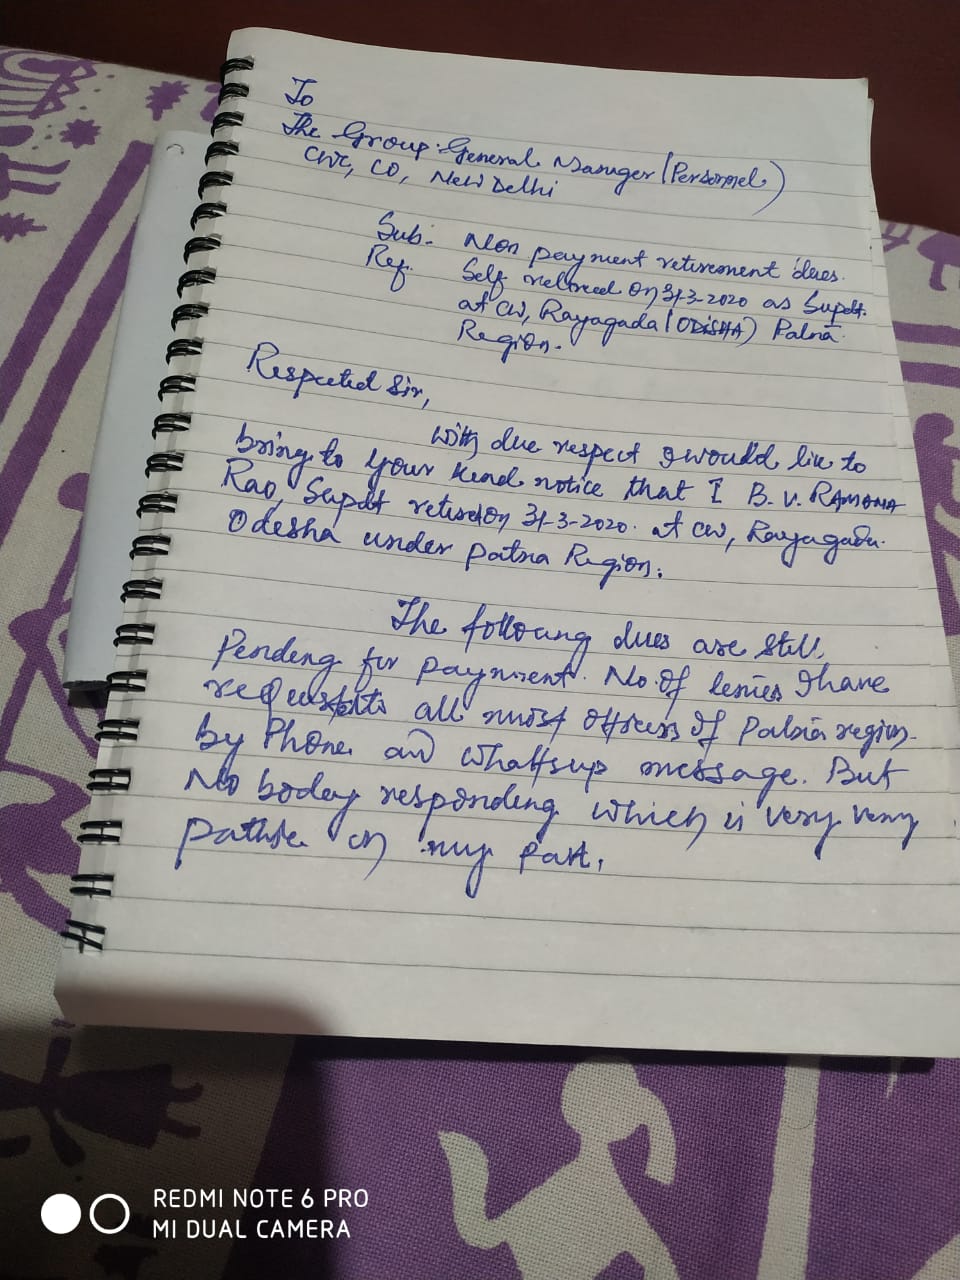 To
The Group General Manager (Personnel)
CWC, CO, New Delhi
Sub:- Non payment retirement dues.
Ref. Self retired on 31-3-2020 as Supdt.
at CW, Rayagada (ODISHA) Patna
Region.
Respected Sir,
With due respect I would like to
bring to your kind notice that I B. V. RAMANA
Rao, Supdt retired on 31-3-2020. at CW, Rayagada.
Odesha under Patna Region.
The following dues are still
Pending for payment. No. of times I have
requests all most officers of Patna region.
by Phone and Whatsup message. But
No bodey responding which is very very
pathtic on my part.
REDMI NOTE 6 PRO
MI DUAL CAMERA